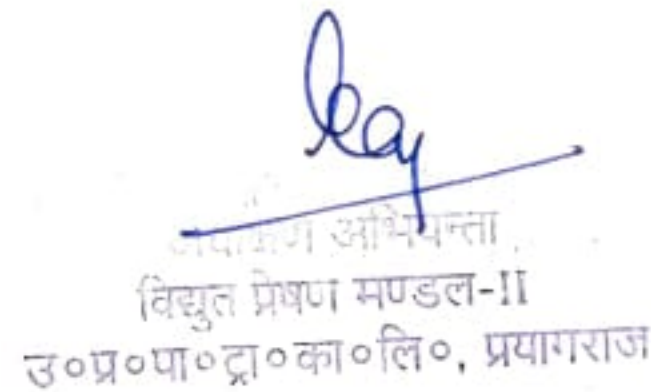 अभियन्ता
विद्युत प्रेषण मण्डल-II
उ०प्र०पा०ट्रा०का०लि०, प्रयागराज